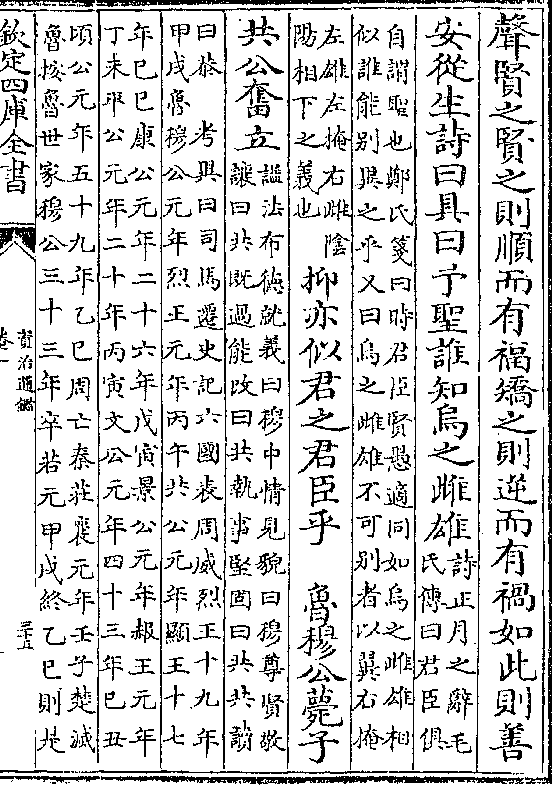 聲賢之賢之則順而有福矯之則逆而有禍如此則善
安從生詩曰具曰予聖誰知烏之雌雄詩正月之辭毛
氏傳曰君臣俱
自謂聖也鄭氏箋曰時君臣賢愚適同如烏之雌雄相
似誰能别異之乎又曰烏之雌雄不可别者以翼右掩
左雄左掩右雌隂
陽相下之義也抑亦似君之君臣乎 魯穆公薨子
共公奮立謚法布德就義曰穆中情見貌曰穆尊賢敬
讓曰共既過能改曰共執事堅固曰共共讀
曰恭 考異曰司馬遷史記六國表周威烈王十九年
甲戌魯穆公元年烈王元年丙午共公元年顯王十七
年己巳康公元年二十六年戊寅景公元年赧王元年
丁未平公元年二十年丙寅文公元年四十三年己丑
頃公元年五十九年乙巳周亡秦莊襄元年壬子楚滅
魯按魯世家穆公三十三年卒若元甲戌終乙巳則是
欽定四庫全書
資治通鑑
卷一
三十五